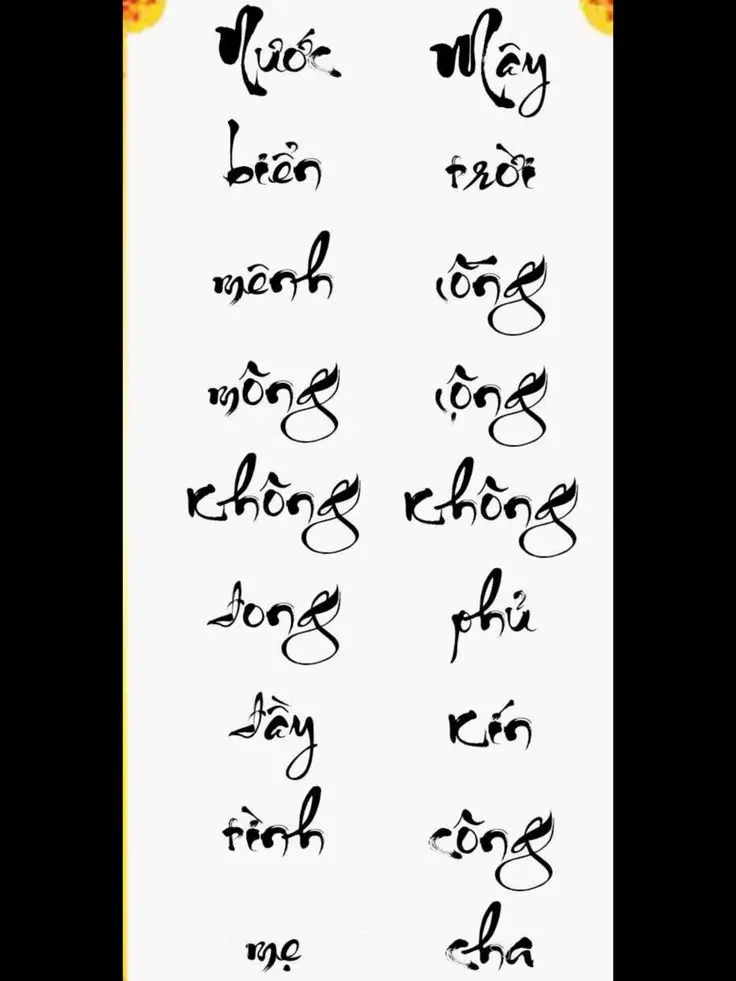 Nước
biển
mênh
mông
không
đong
đầy
tình
mẹ
Mây
trời
lồng
lộng
không
phủ
kín
công
cha